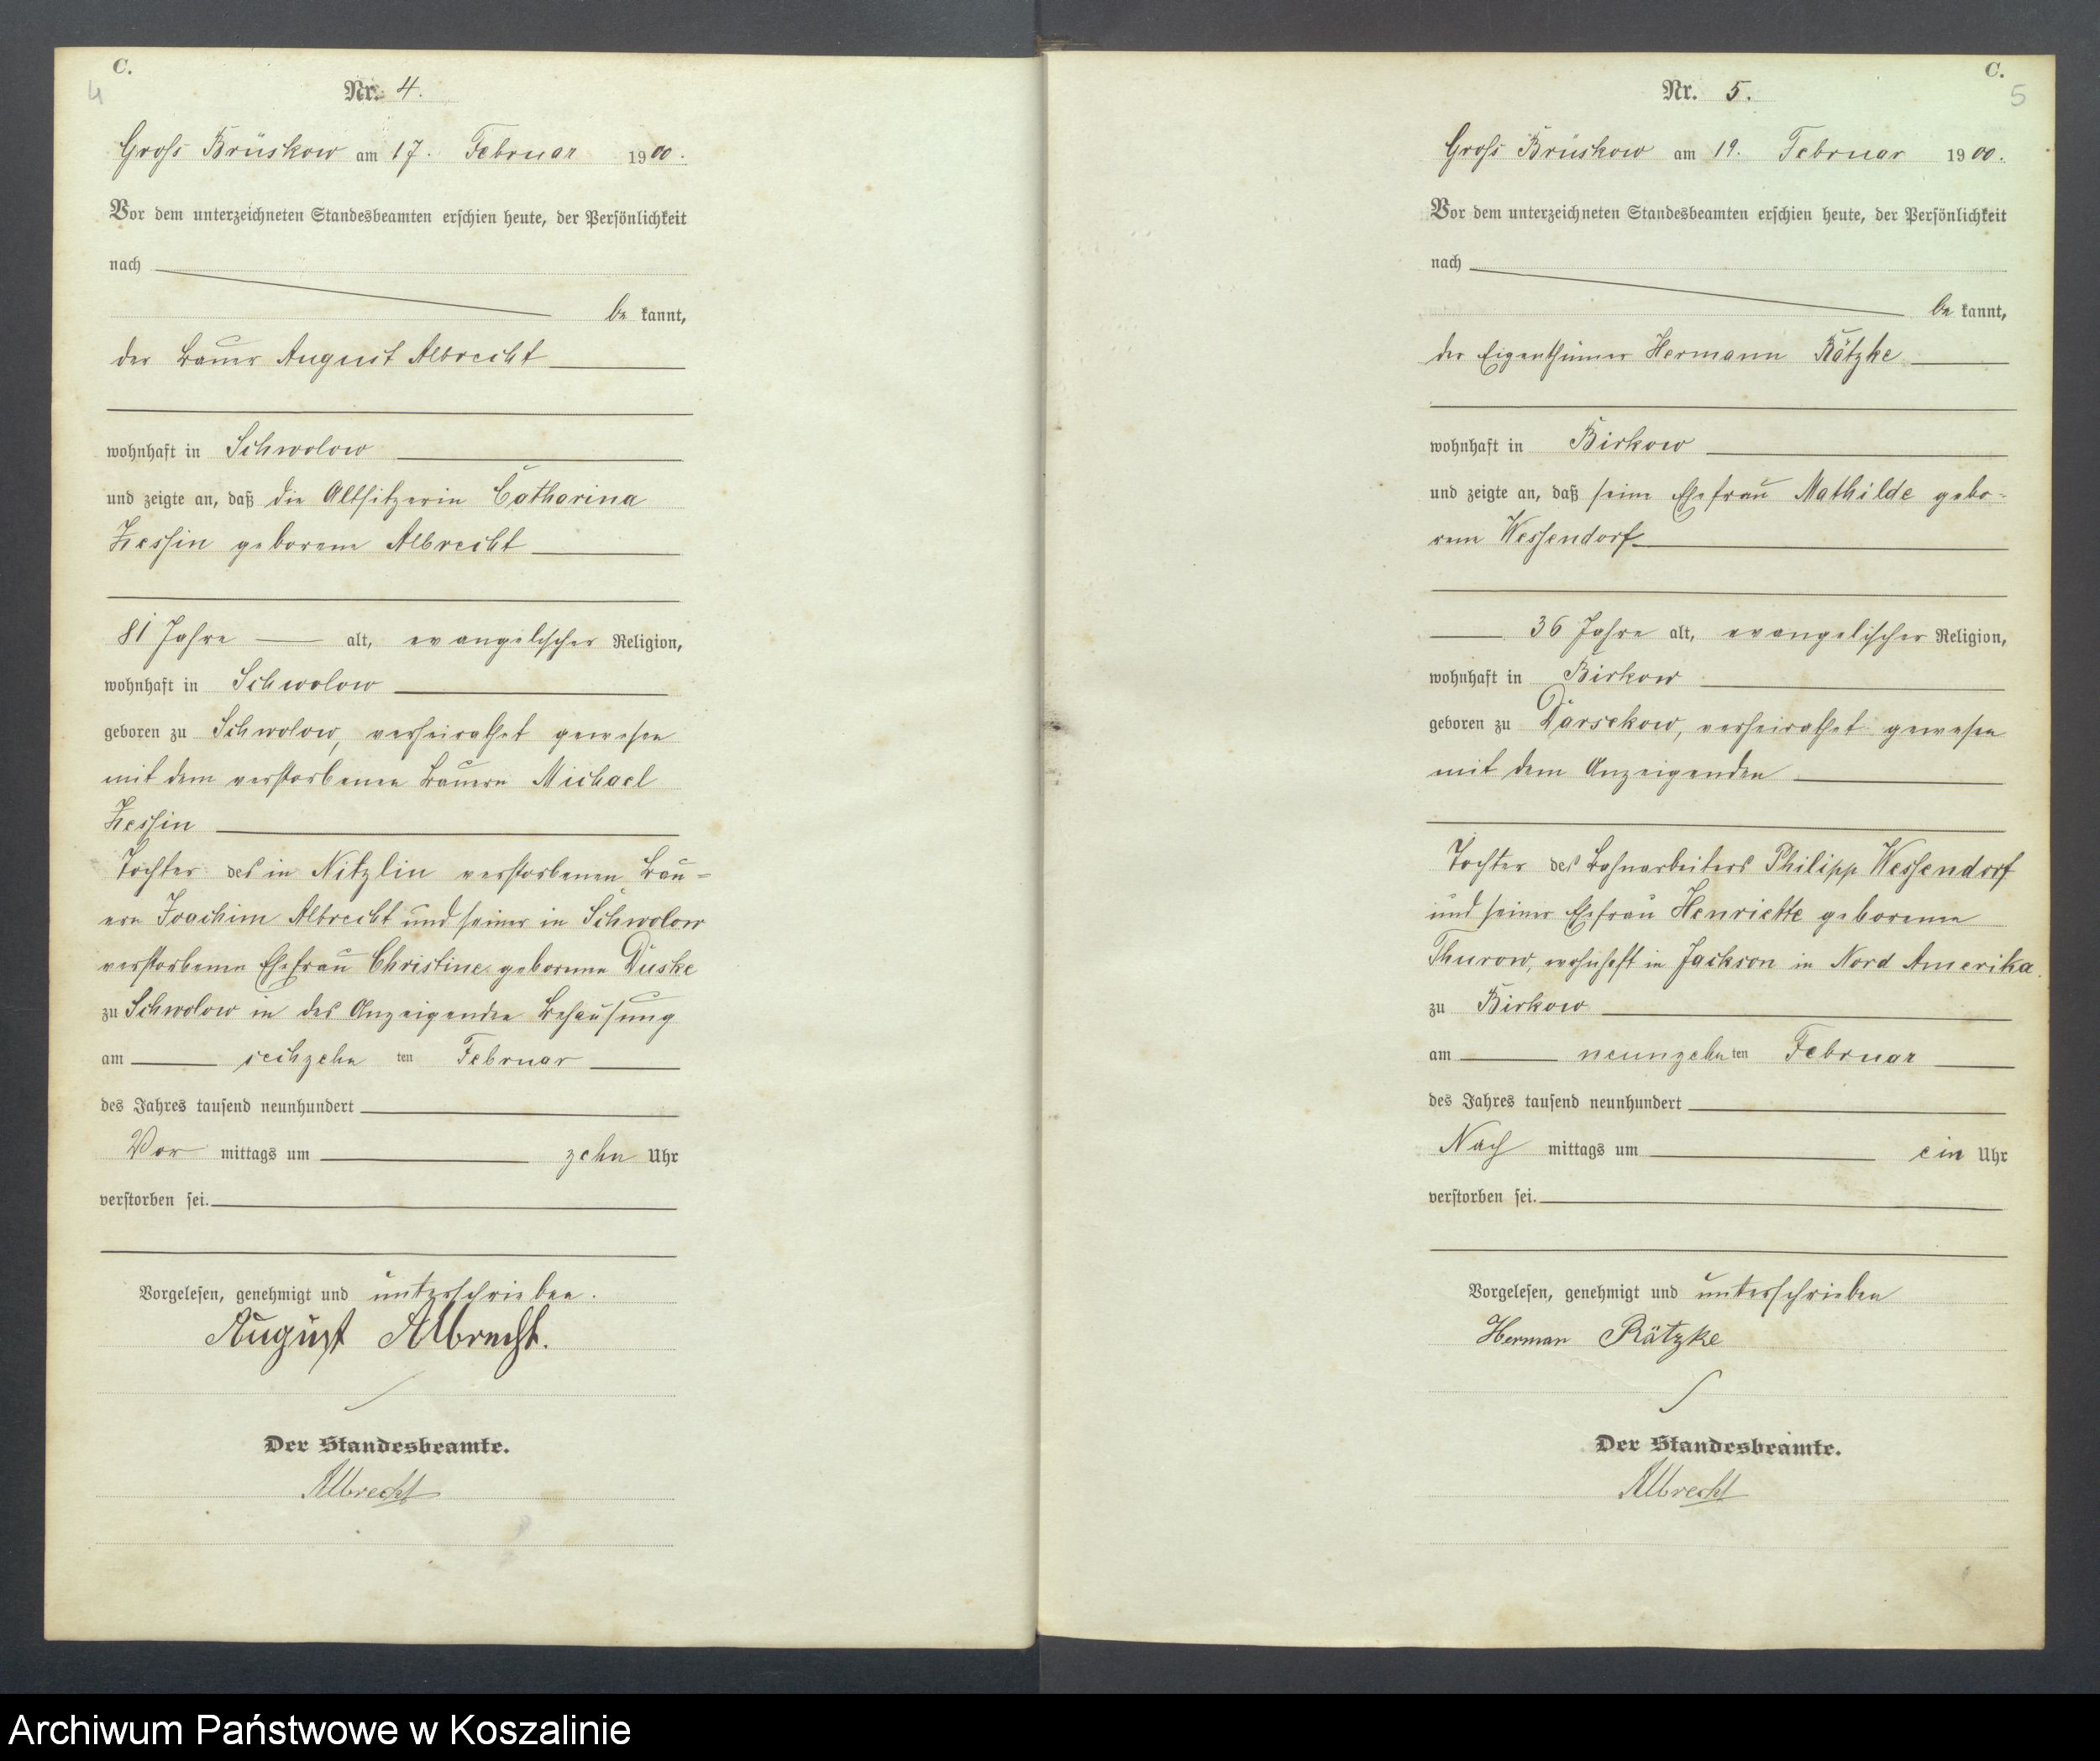 C.
4
Nr. 4.
Groß Brüskow am 17. Februar 1900.
Vor dem unterzeichneten Standesbeamten erschien heute, der Persönlichkeit
nach
be kannt,
der Bauer August Albrecht
wohnhaft in Schwolow
und zeigte an, daß die Altsitzerin Catharina
Zessin geborene Albrecht
81 Jahre alt, evangelischer Religion,
wohnhaft in Schwolow
geboren zu Schwolow, verheirathet gewesen
mit dem verstorbenen Bauern Michael
Zessin
Tochter des in Nitzlin verstorbenen Bau-
ern Joachim Albrecht und seiner in Schwolow
verstorbenen Ehefrau Christine geborenen Duske
zu Schwolow in des Anzeigenden Behausung
am sechzehn ten Februar
des Jahres tausend neunhundert
Vor mittags um zehn Uhr
verstorben sei.
Vorgelesen, genehmigt und unterschrieben.
August Albrecht.
Der Standesbeamte.
Albrecht
C.
5
Nr. 5.
Groß Brüskow am 19. Februar 1900.
Vor dem unterzeichneten Standesbeamten erschien heute, der Persönlichkeit
nach
be kannt,
der Eigenthümer Hermann Rätzke
wohnhaft in Birkow
und zeigte an, daß seine Ehefrau Mathilde gebo-
rene Wessendorf
36 Jahre alt, evangelischer Religion,
wohnhaft in Birkow
geboren zu Darsekow, verheirathet gewesen
mit dem Anzeigenden
Tochter des Bahnarbeiters Philipp Wessendorf
und seiner Ehefrau Henriette geborenen
Thurow, wohnhaft in Jackson in Nord Amerika.
zu Birkow
am neunzehn ten Februar
des Jahres tausend neunhundert
Nach mittags um ein Uhr
verstorben sei.
Vorgelesen, genehmigt und unterschrieben
Herman Rätzke
Der Standesbeamte.
Albrecht
Archiwum Państwowe w Koszalinie